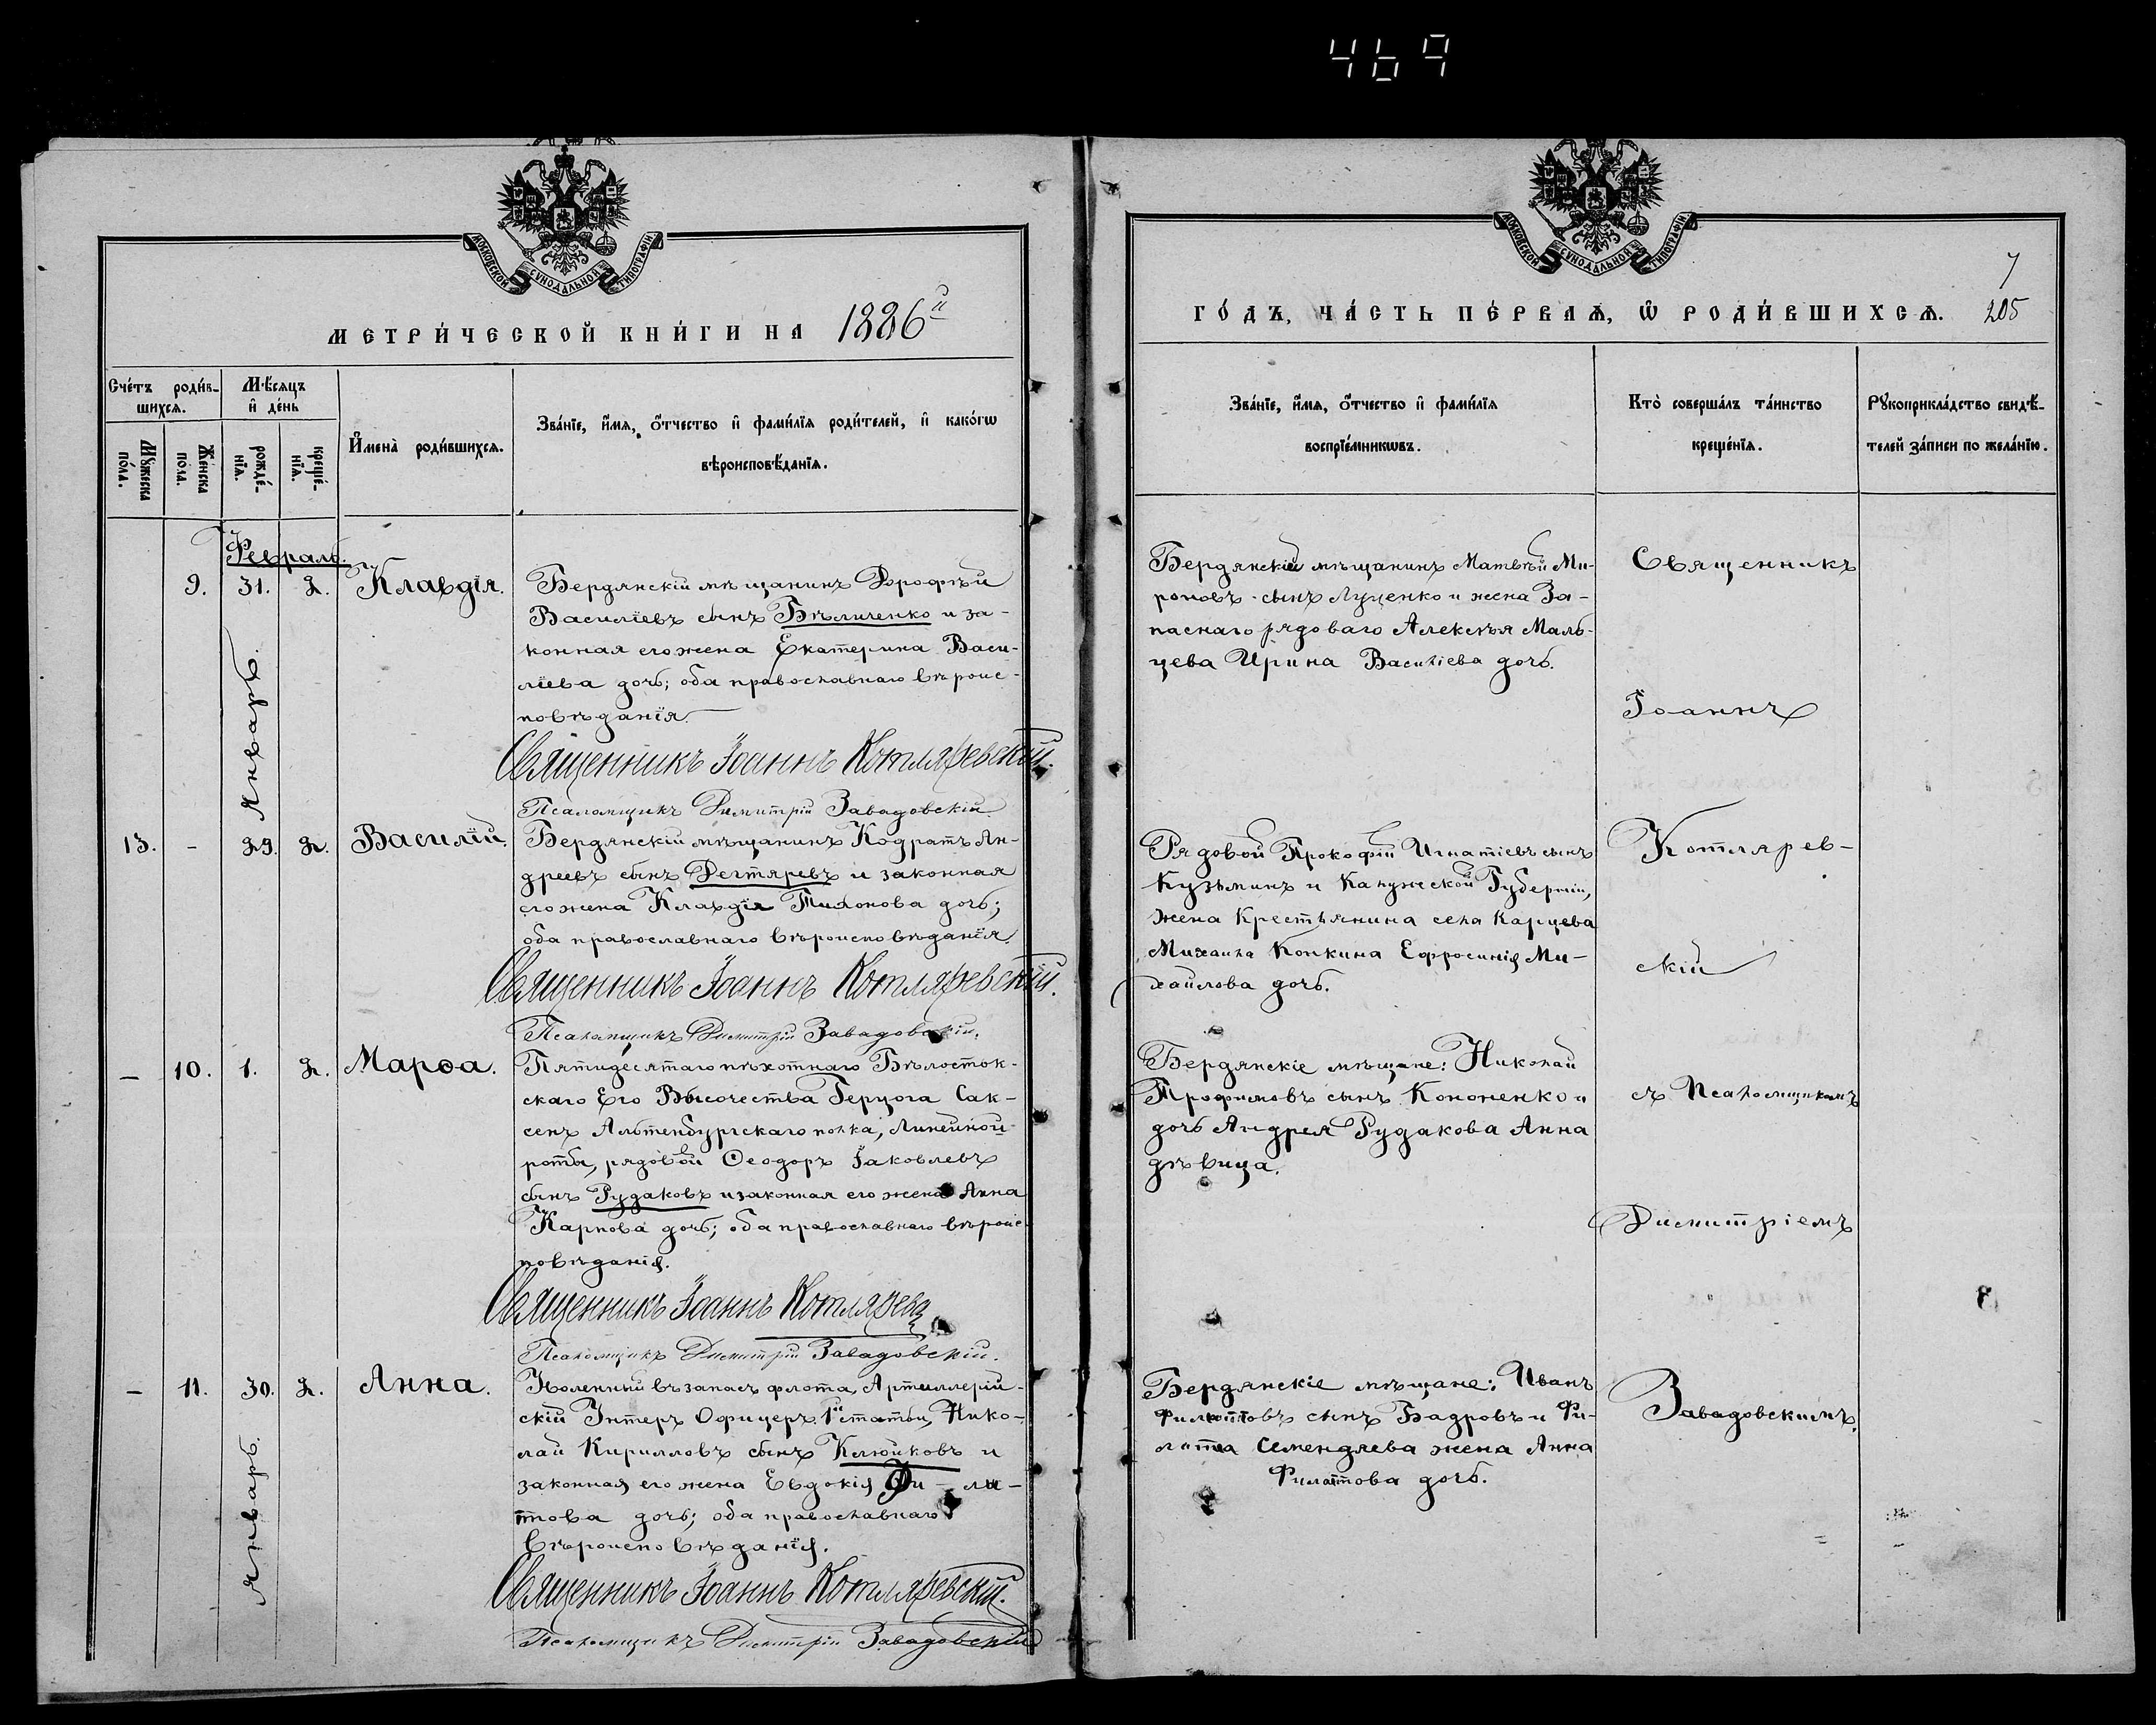 469
МОСКОВСКОЙ СѴНОДАЛЬНОЙ ТИПОГРАФІИ
МЕТРИ́ЧЕСКОЙ КНИ́ГИ НА 1886й
Сче́тъ роди́вшихсѧ.
Мѣ́сѧцъ и҆ де́нь
Мꙋ́жеска по́ла.
Же́нска по́ла.
рожде́нїѧ.
креще́нїѧ.
И҆мена̀ роди́вшихсѧ.
Зва́нїе, и҆́мѧ, ѻ҆́тчество и҆ фами́лїѧ роди́телей, и҆ како́гѡ
вѣроисповѣ́данїѧ.
Февраль.
9. 31. 2. Клавдія.
Бердянскій мѣщанинъ Дорофѣй
Василіевъ сынъ Бѣличенко и за-
конная его жена Екатерина Васи-
лiева дочь; оба православнаго вѣроис-
повѣданія.
Январь.
Священникъ Іоаннъ Котляревскій.
Псаломщикъ Димитрій Завадовскій.
13. - 29. 2. Василій.
Бердянскій мѣщанинъ Кодратъ Ан-
дреевъ сынъ Дегтяревъ и законная
его жена Клавдія Тихонова дочь;
оба православнаго вѣроисповѣданія.
Священникъ Іоаннъ Котляревскій.
Псаломщикъ Димитрій Завадовскій.
— 10. 1. 2. Марѳа.
Пятидесятаго пѣхотнаго Бѣлосток-
скаго Его Высочества Герцога Сак-
сенъ Альтенбургскаго полка, Линейной
роты, рядовой Ѳеодоръ Іаковлевъ
сынъ Рудаковъ и законная его жена Анна
Карпова дочь; оба православнаго вѣроис-
повѣданія.
Священникъ Іоаннъ Котлярев
Псаломщикъ Димитрій Завадовскій.
— 11. 30. 2. Анна.
въ запасъ флота, Артиллерій-
скій Унтеръ Офицеръ 1й статьи, Нико-
лай Кирилловъ сынъ Клюйковъ и
законная его жена Евдокія Фи-ла-
това дочь; оба православнаго
вѣроисповѣданія.
Январь.
Священникъ Іоаннъ Котляревскій.
Псаломщикъ Димитрій Завадовскій
МОСКОВСКОЙ СѴНОДАЛЬНОЙ ТИПОГРАФІИ
7
ГО́ДЪ, ЧА́СТЬ ПЕ́РВАѦ, Ѡ҆ РОДИ́ВШИХСѦ. 205
Зва́нїе, и҆́мѧ, ѻ҆́тчество и҆ фами́лїѧ
воспрїе́мникѡвъ.
Кто̀ соверша́лъ та́инство
креще́нїѧ.
Рꙋкоприкла́дство свидѣ́-
телей за́писи по жела́нїю.
Бердянскій мѣщанинъ Матвѣй Ми-
роновъ сынъ Луценко и жена За-
паснаго рядоваго Алексѣя Маль-
цева Ирина Василіева дочь.
Рядовой Прокофій Игнатіевъ сынъ
Кузьминъ и Калужской Губерніи,
жена Крестьянина села Карцева
Михаила Копкина Ефросинія Ми-
хайлова дочь.
Бердянскіе мѣщане: Николай
Трофимовъ сынъ Кононенко и
дочь Андрея Рудакова Анна
дѣвица.
Бердянскіе мѣщане: Иванъ
Филиповъ сынъ Бадровъ и Фи-
лата Семендяева жена Анна
Филатова дочь.
Священникъ
Іоаннъ
Котлярев-
скій
съ Псаломщикомъ
Димитріемъ
Завадовскимъ.